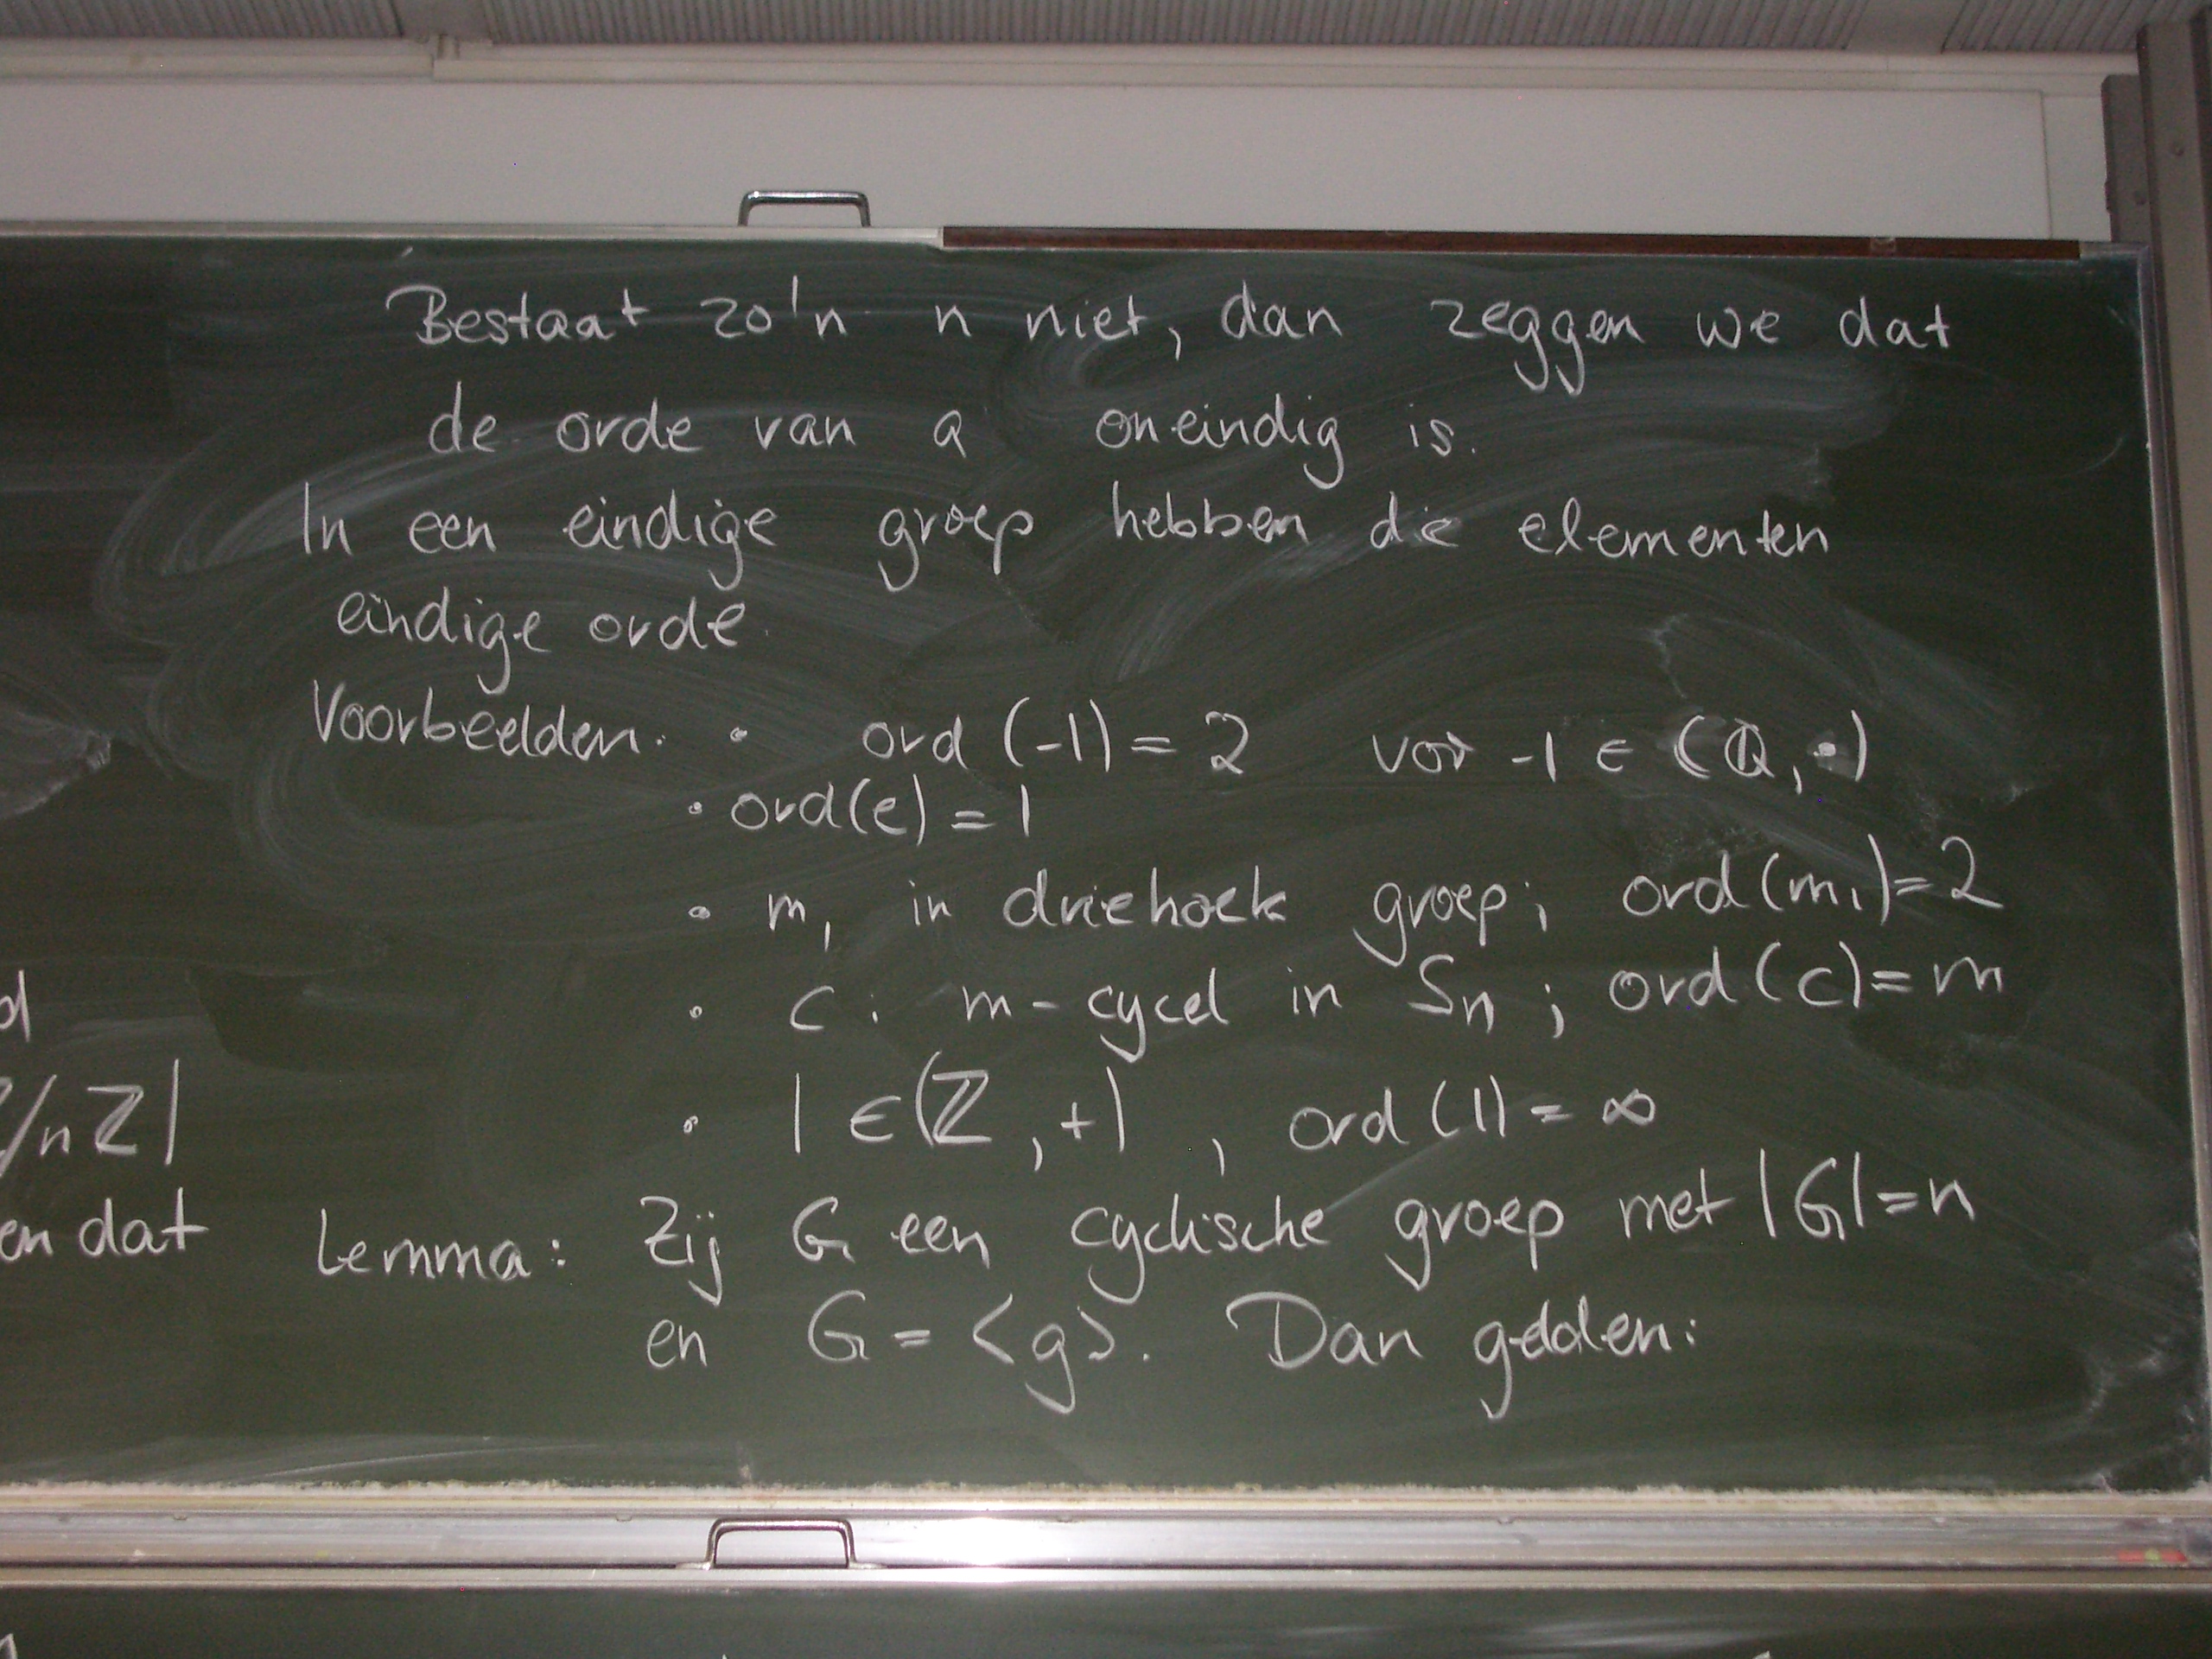 Bestaat zo'n n niet, dan zeggen we dat
de orde van a oneindig is.
In een eindige groep hebben die elementen
eindige orde.
Voorbeelden. • ord (-1) = 2 vor -1 ∈ (ℚ, ·)
• ord(e) = 1
• m₁ in driehoek groep; ord(m₁)=2
• c: m-cycel in Sn ; ord(c)=m
• 1 ∈ (ℤ, +) , ord (1) = ∞
Lemma: Zij G een cyclische groep met |G|=n
en G = <g>. Dan gelden:
/nℤ|
en dat